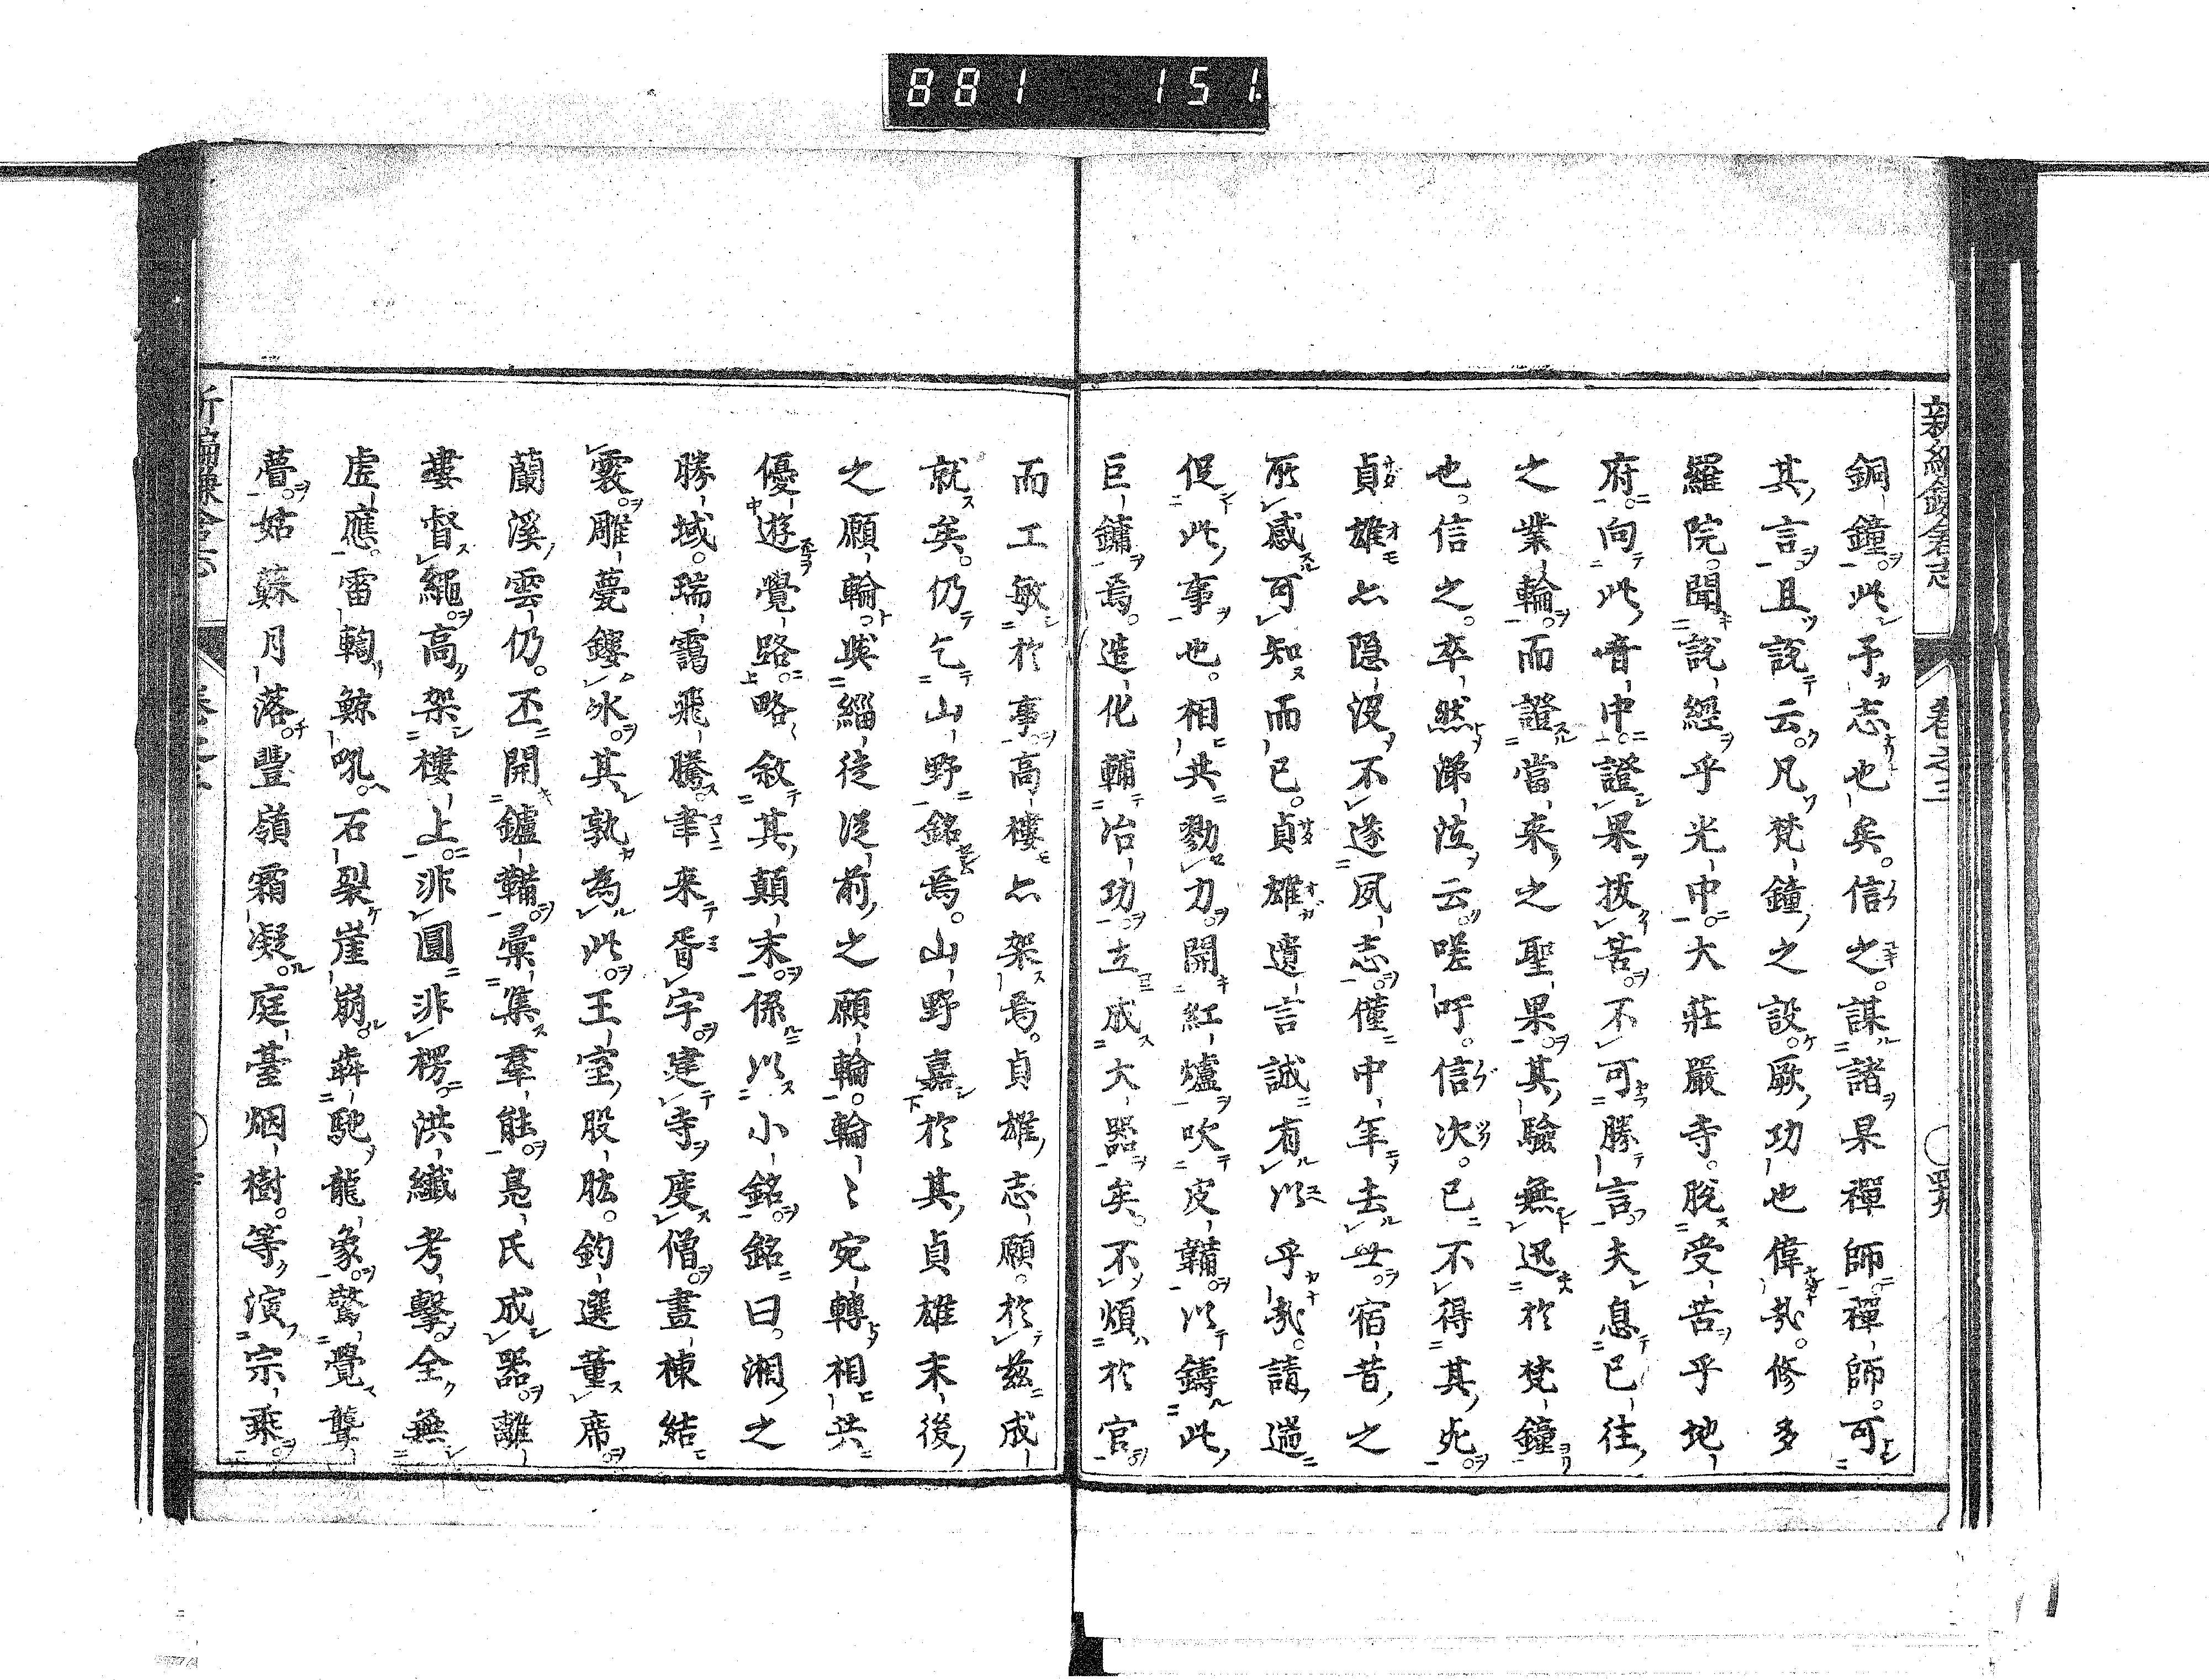 881 151
新編鎌倉志 卷之三 四九
銅鐘。此予志也矣。信之。謀諸杲禪師。禪師。可
其言。且說云。凡梵鐘之設。厥功也偉哉。修多
羅院。聞說經乎光中。大莊嚴寺。脫受苦乎地
府。向此音中。證果拔苦。不可勝言。夫息已往
之業輪。而證當來之聖果。其驗無迅於梵鐘
也。信之。卒然涕泣云。嗟吁。信次。已不得其死。
貞雄亦隱沒。不遂夙志。僅中年去世。宿昔之
所感可知而已。貞雄遺言誠有以乎哉。請遄
促此事也。相共勠力。開紅爐。吹皮鞴。以鑄此
巨鏞焉。造化輔冶功。立成大器矣。不煩於官
而工敏於事。高樓亦架焉。貞雄志願。於茲成
就矣。仍乞山野銘焉。山野嘉於其貞雄末後
之願輪。與緇徒從前之願輪。輪〻宛轉相共
優遊覺路。略敘其顛末。係以小銘。銘曰。湘之
勝域。瑞靄飛騰。聿来胥宇。建寺度僧。畫棟結
霧。雕甍鏤冰。其孰為此。王室股肱。鈞選董席。
蘭溪雲仍。丕開鑪鞴。彙集羣能。鳧氏成器。離
婁督繩。高架樓上。非圓非楞。洪纖考擊。全無
虛應。雷輷鯨吼。石裂崖崩。犇馳龍象。驚覺聾
瞢。姑蘇月落。豐嶺霜凝。庭薹烟樹。等演宗乘。